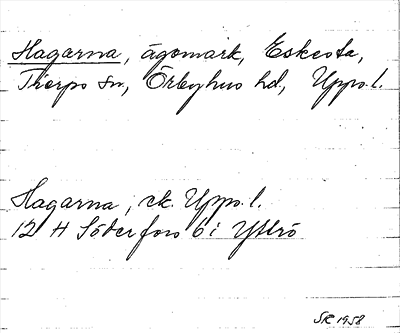 Hagarna, ägomark, Eskesta,
Tierps sn, Örbyhus hd, Upps. l.
Hagarna, ek. Upps. l.
12 H Söderfors 6 i Yttrö
SR 1958